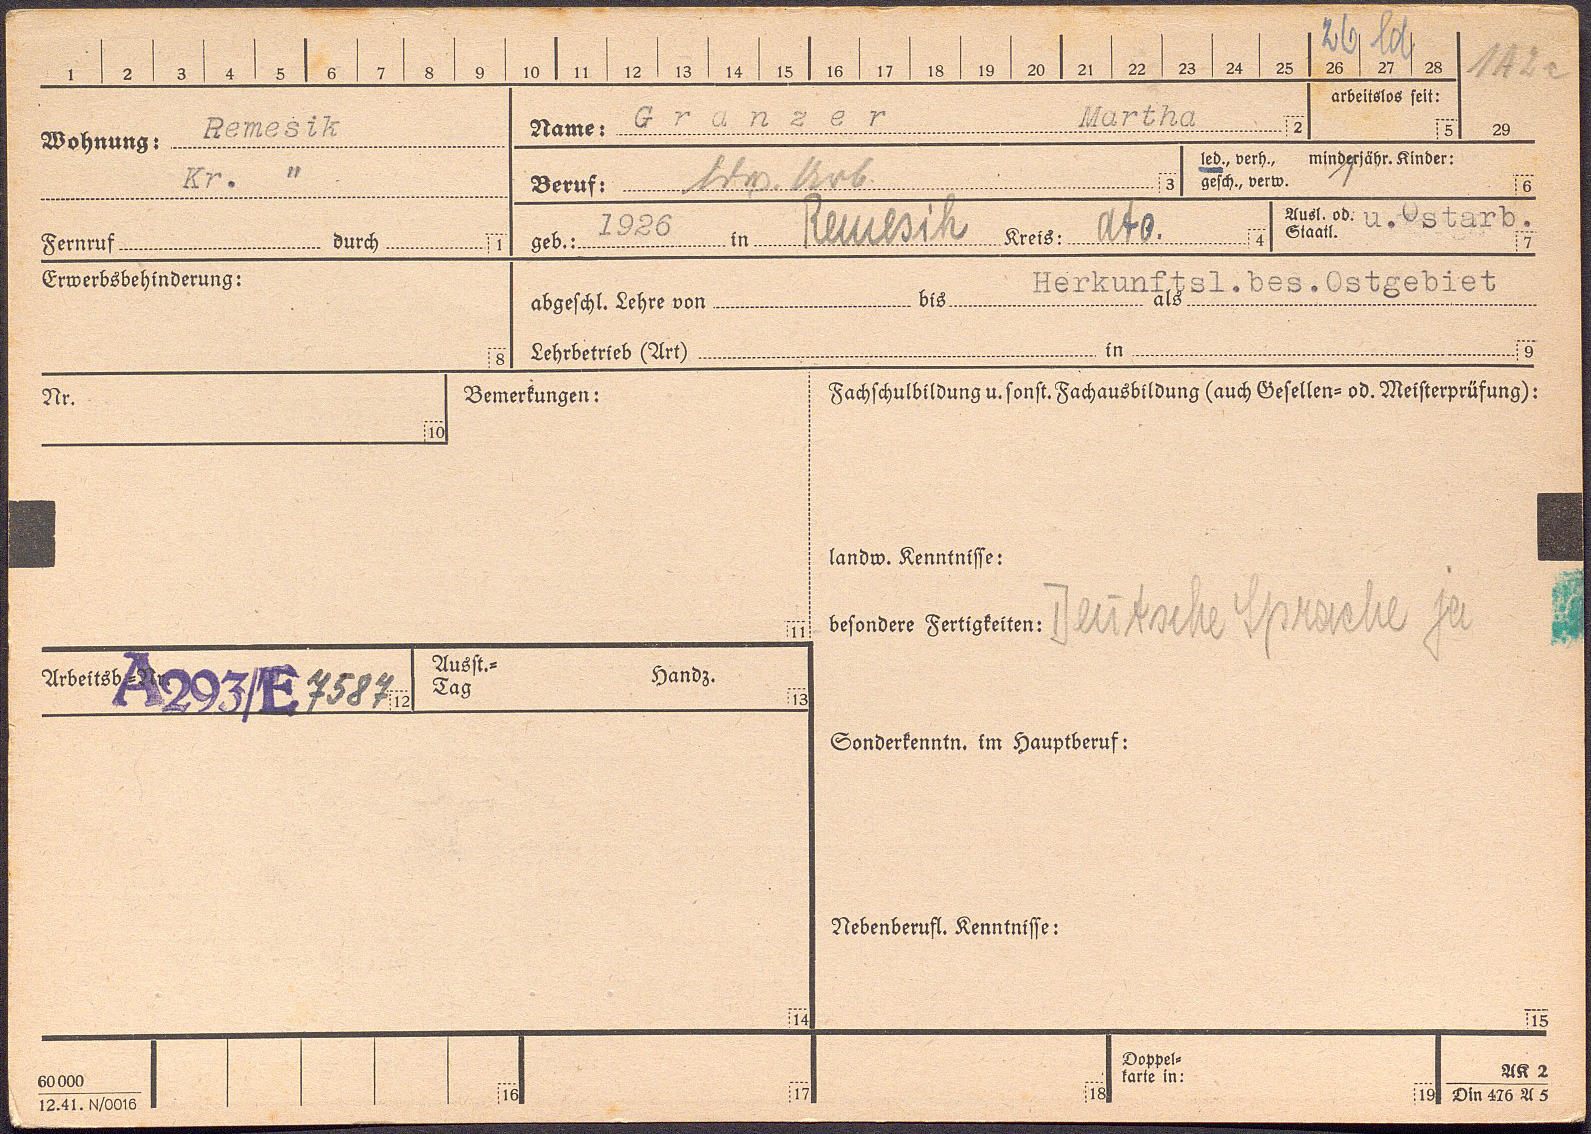 26 ld
1A2c
1 2 3 4 5 6 7 8 9 10 11 12 13 14 15 16 17 18 19 20 21 22 23 24 25 26 27 28
29
Wohnung: Remesik
Kr. "
Fernruf durch 1
Name: Granzer Martha 2
arbeitslos seit: 5
Beruf: ldw. Arb. 3
led., verh.,
gesch., verw.
minderjähr. Kinder: 6
geb.: 1926 in Remesik Kreis: dto. 4
Ausl. od. Staatl. u. Ostarb. 7
Erwerbsbehinderung: 8
Herkunftsl.bes.Ostgebiet
abgeschl. Lehre von bis als
Lehrbetrieb (Art) in 9
Nr. 10
Bemerkungen: 11
Fachschulbildung u. sonst. Fachausbildung (auch Gesellen= od. Meisterprüfung):
landw. Kenntnisse:
besondere Fertigkeiten: Deutsche Sprache ja
Arbeitsb.=Nr. A293/E 7587 12
Ausst.=
Tag Handz. 13
Sonderkenntn. im Hauptberuf:
Nebenberufl. Kenntnisse:
14
15
60 000
12.41. N/0016
16
17
18
Doppel=
karte in: 19
AK 2
Din 476 A 5